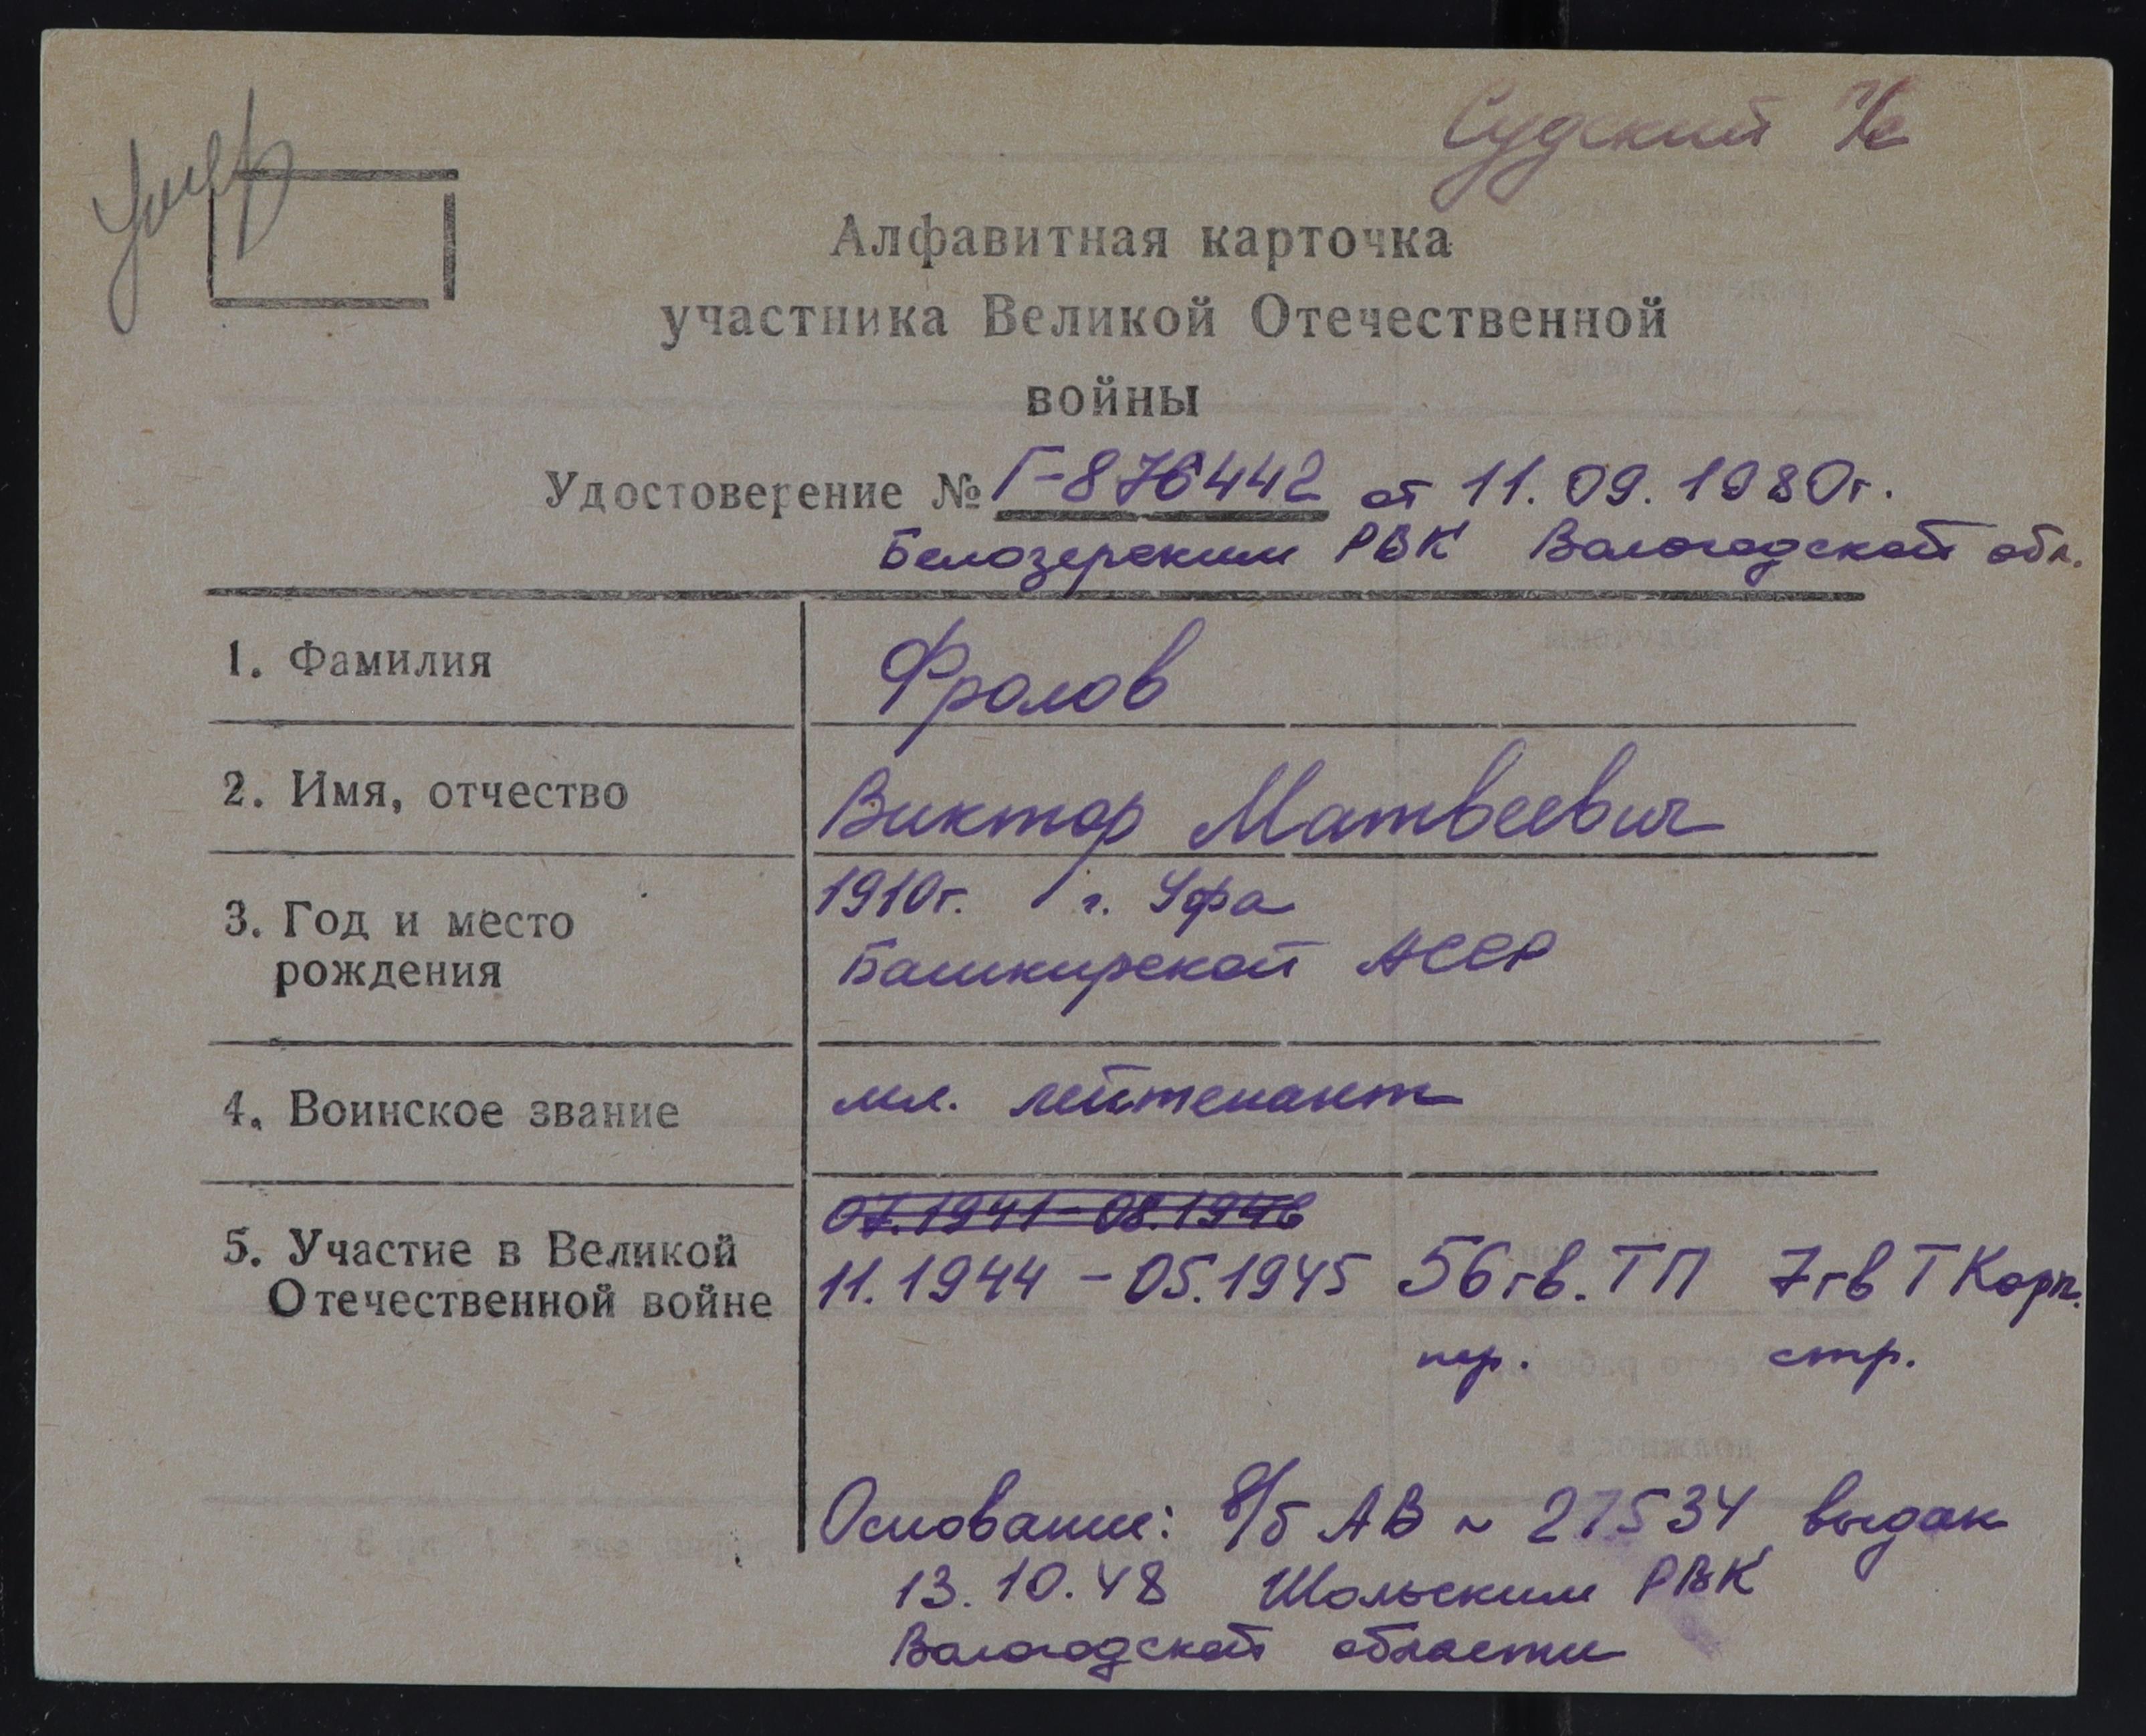 Судский с/с
умер
Алфавитная карточка
участника Великой Отечественной
войны
Удостоверение № Г-876442 от 11.09.1980г.
Белозерским РВК Вологодской обл.
1. Фамилия Фролов
2. Имя, отчество Виктор Матвеевич
3. Год и место 1910г. г. Уфа
рождения Башкирской АССР
4. Воинское звание мл. лейтенант
07.1941-08.1946
5. Участие в Великой
Отечественной войне 11.1944 - 05.1945 56 гв. ТП 7 гв Т Корп.
стр.
Основание: в/б АВ № 27534 выдан
13.10.48 Шольским РВК
Вологодской области